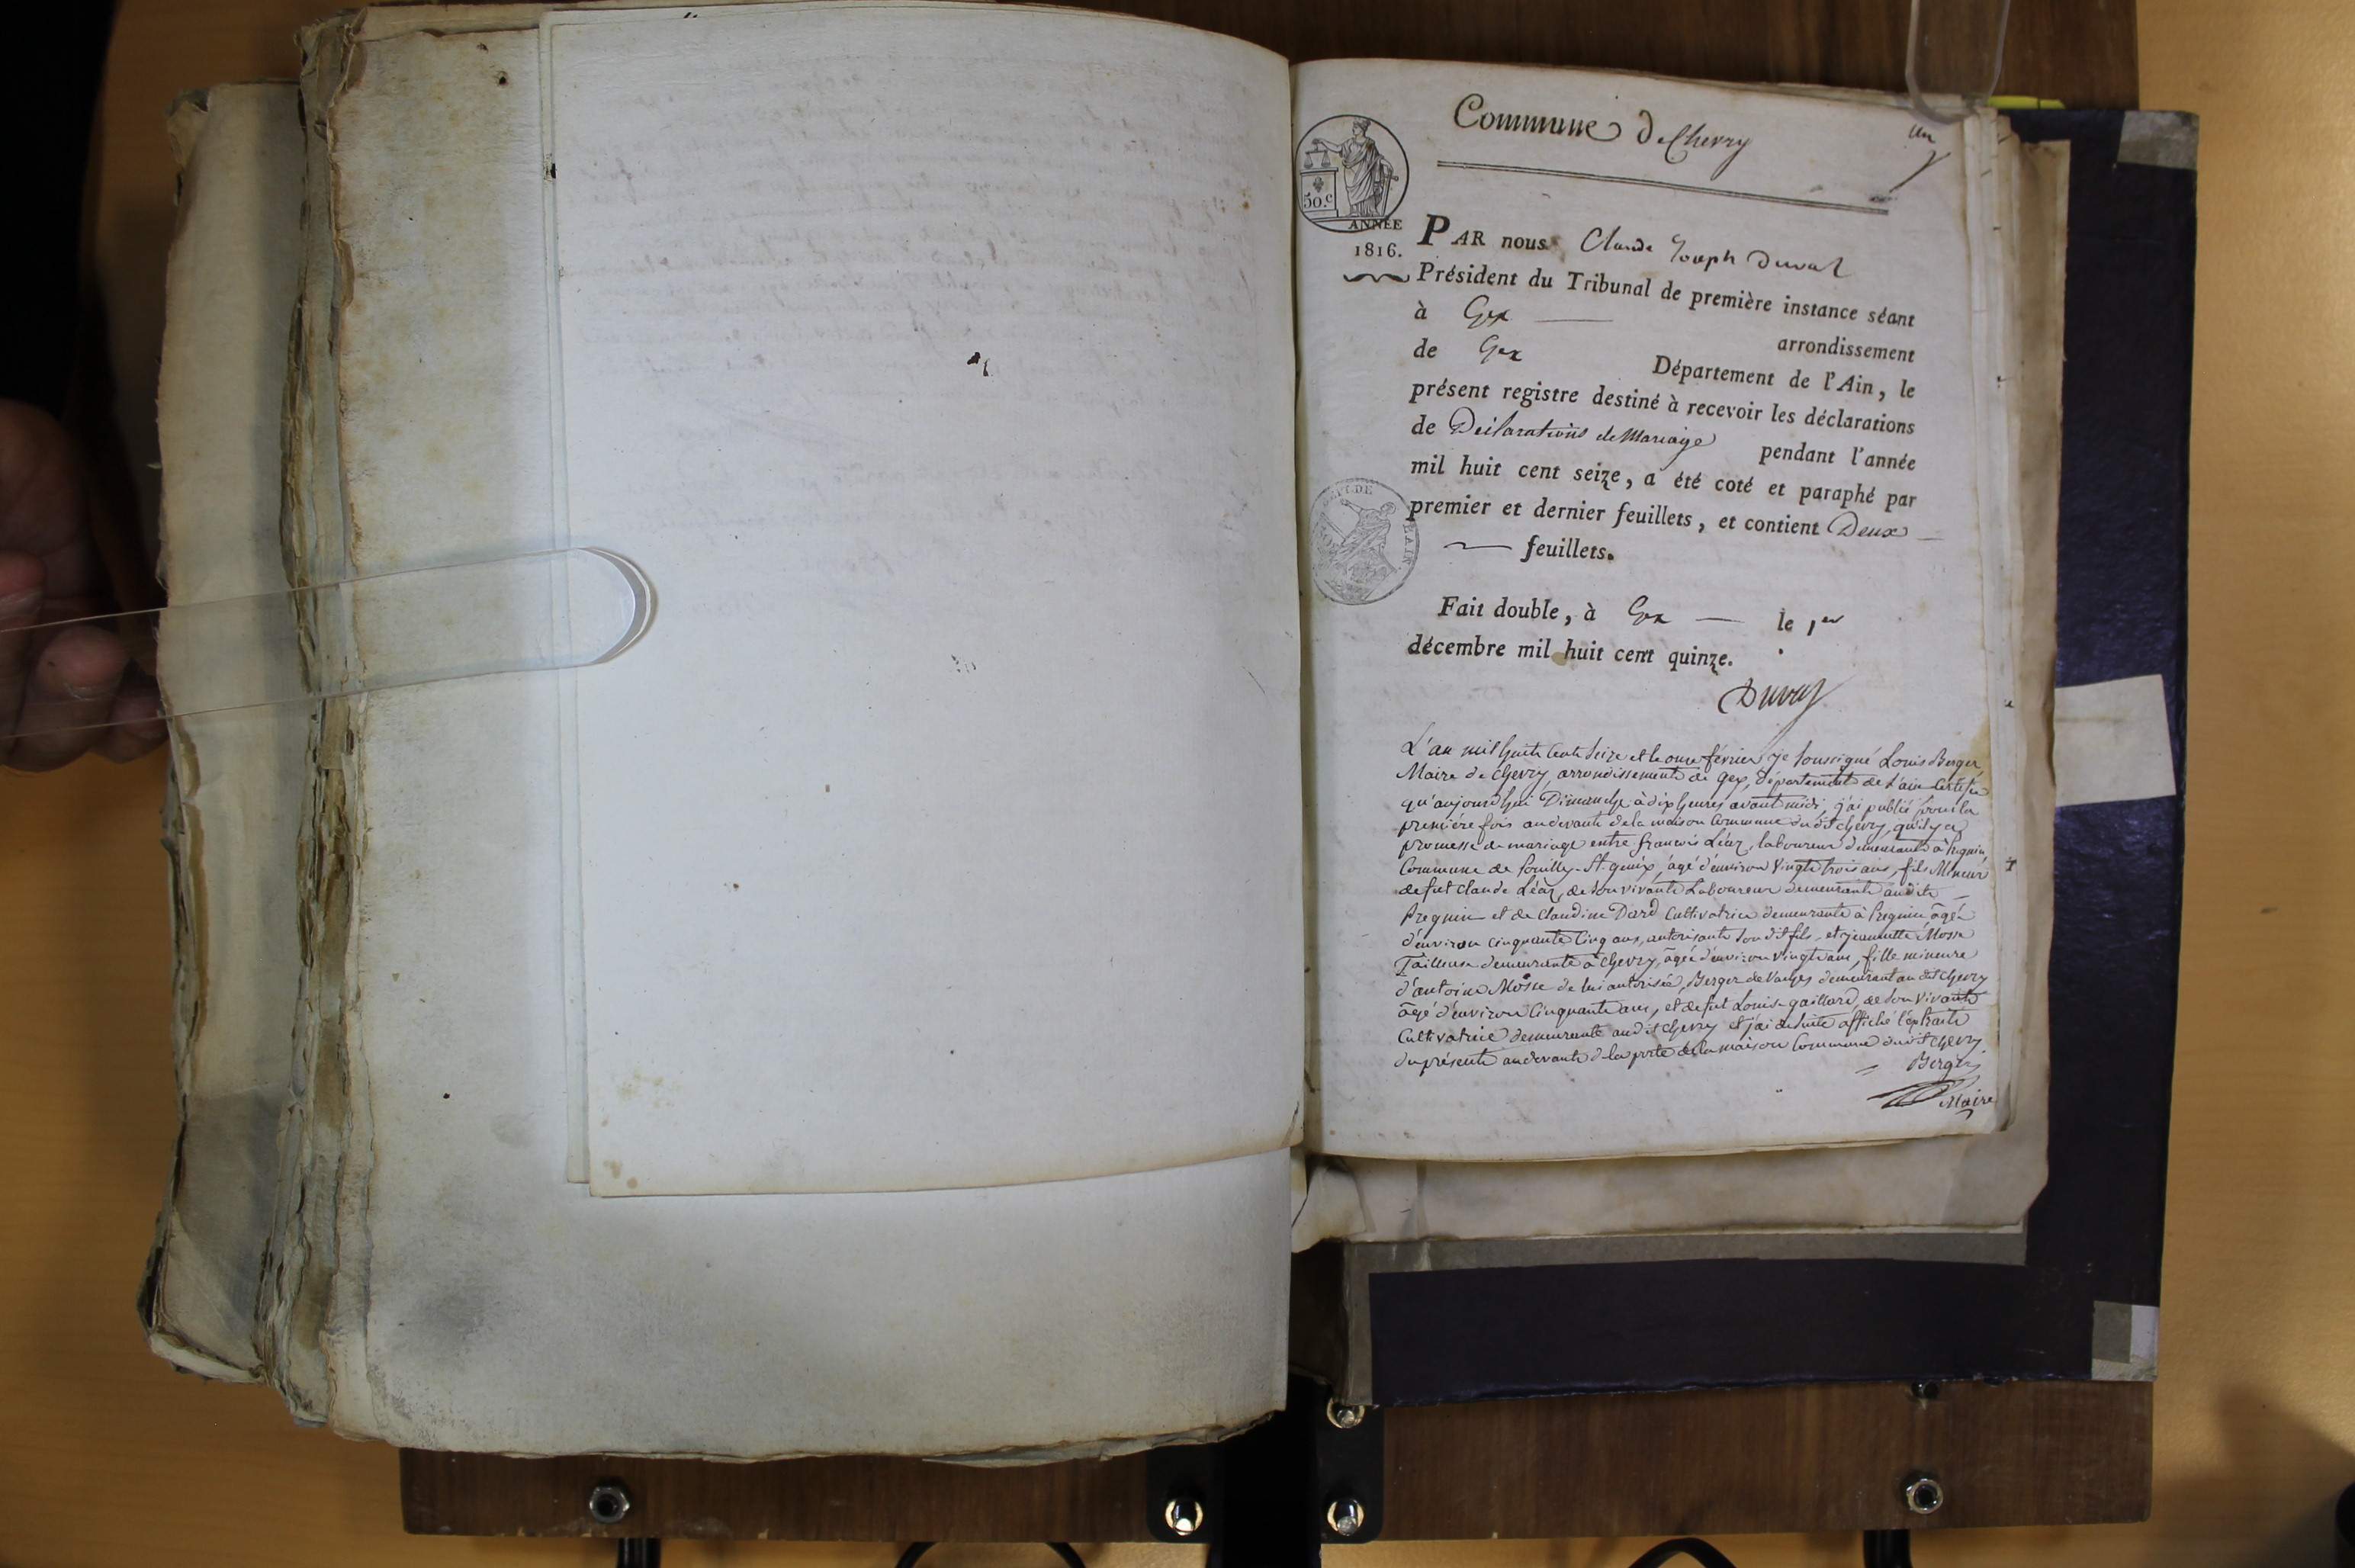 Commune de Chevry
un
50.c
ANNÉE
1816.
PAR nous Claude Joseph Duval
Président du Tribunal de première instance séant
à Gex arrondissement
de Gex Département de l'Ain, le
présent registre destiné à recevoir les déclarations
de Déclarations de Mariage pendant l'année
mil huit cent seize, a été coté et paraphé par
premier et dernier feuillets, et contient Deux
feuillets.
Fait double, à Gex le 1er
décembre mil huit cent quinze.
Duval
L'an mil huit cent seize et le onze février je soussigné Louis Berger
Maire de Chevry, arrondissement de Gex, département de l'ain Certifie
qu'aujourd'hui Dimanche à dix heures avant midi, j'ai publié pour la
première fois au devant de la maison Commune du dit Chevry, qu'il y a
promesse de mariage entre francois Léaz, laboureur demeurant à Pregnin
Commune de Pouilly-St. genix, âgé d'environ vingt trois ans, fils Mineur
de fut Claude Léaz, de son vivant Laboureur demeurant audit
Pregnin et de Claudine Dard Cultivatrice demeurante à Pregnin âgée
d'environ cinquante Cinq ans, autorisante son dit fils, et jeannette Mosse
Tailleuse demeurante à Chevry, âgée d'environ vingt ans, fille mineure
d'antoine Mosse de lui autorisée, Berger de Vaches demeurant au dit Chevry
âgé d'environ Cinquante ans, et de fut Louise gaillard, de son vivant
Cultivatrice demeurante audit Chevry et j'ai de suite affiché l'extrait
du présent au devant de la porte de la maison Commune du dit Chevry
Berger
Maire